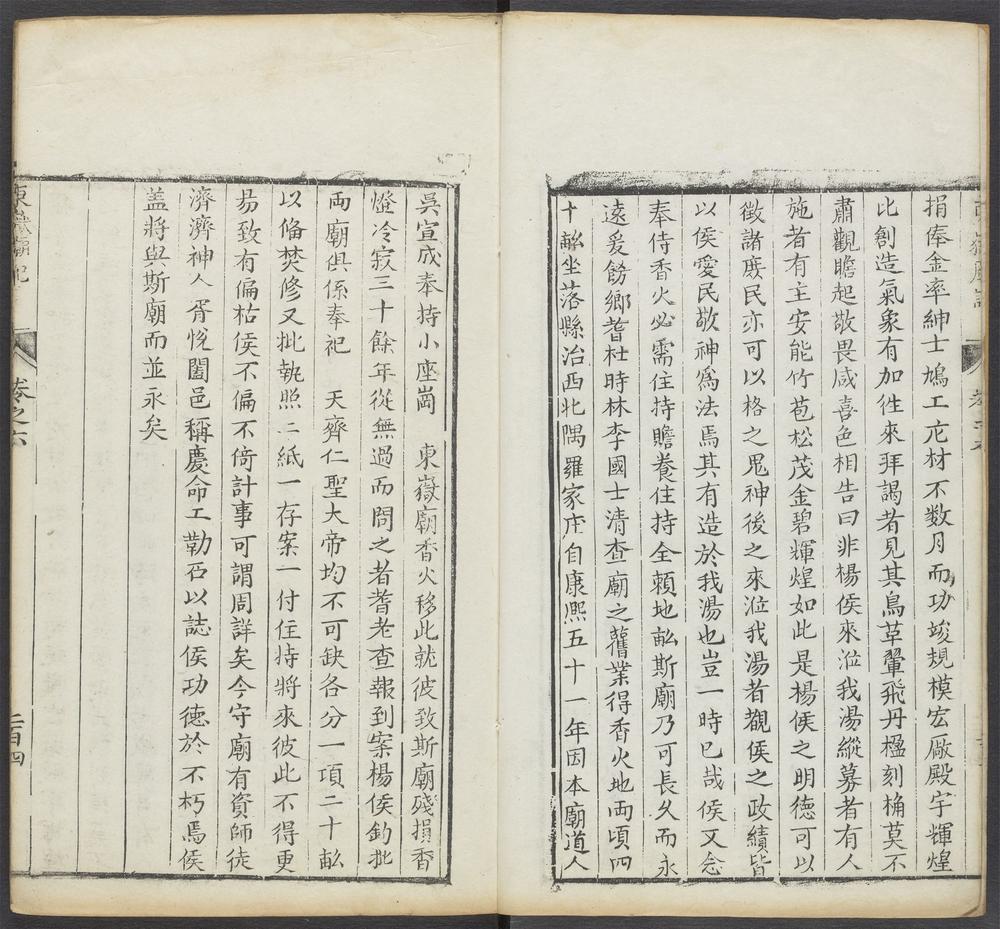 捐俸金率紳士鳩工庀材不数月而功竣規模宏厰殿宇輝煌
比創造氣象有加徃來拜謁者見其鳥革翬飛丹楹刻桷莫不
肅觀瞻起敬畏咸喜色相告曰非楊侯來涖我湯縱募者有人
施者有主安能竹苞松茂金碧輝煌如此是楊侯之明德可以
徵諸庻民亦可以格之鬼神後之來涖我湯者觀侯之政績皆
以侯愛民敬神爲法焉其有造於我湯也豈一時已哉侯又念
奉侍香火必需住持贍養住持全賴地畝斯廟乃可長久而永
遠爰餝鄉耆杜時林李國士清查廟之舊業得香火地両頃四
十畝坐落縣治西北隅羅家庄自康熙五十一年因本廟道人
吳宣成奉持小座崗　東嶽廟香火移此就彼致斯廟殘損香
燈冷寂三十餘年從無過而問之者耆老查報到案楊侯鈞批
両廟俱係奉祀　天齊仁聖大帝均不可缺各分一項二十畝
以俻焚修又批執照二紙一存案一付住持將來彼此不得更
易致有偏枯侯不偏不倚計事可謂周詳矣今守廟有資師徒
濟濟神人胥悅闔邑稱慶命工勒石以誌侯功德於不朽焉侯
盖將與斯廟而並永矣
東嶽廟記
卷之六
二百四